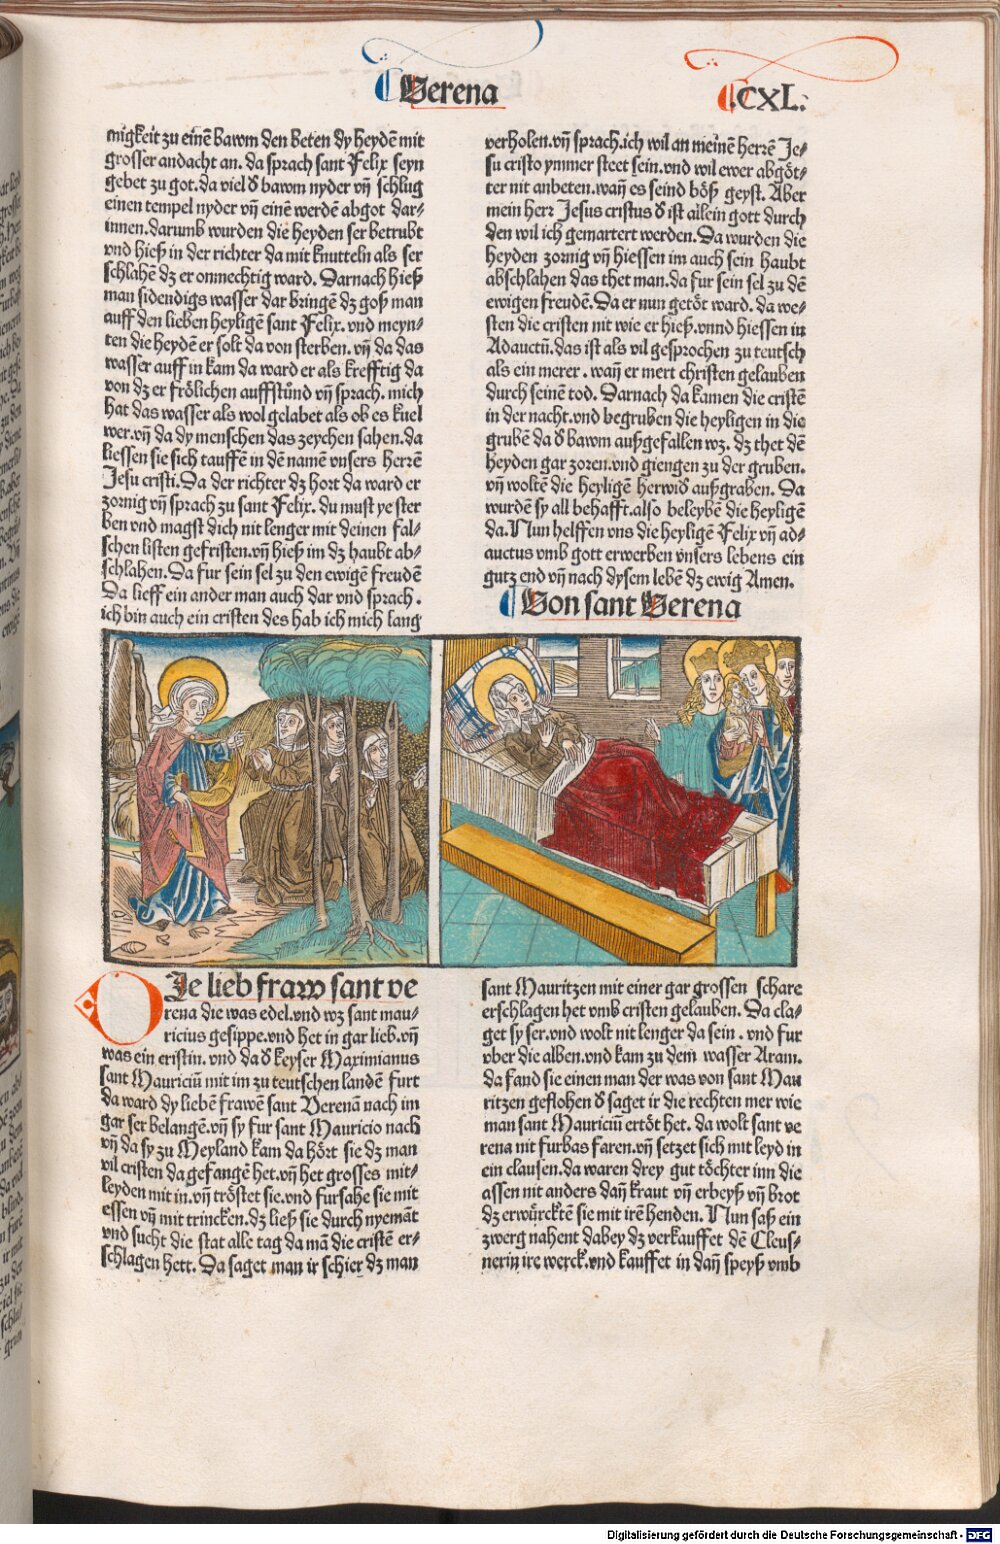 Verena
.CXL.
migkeit zu einē bawm den beten dy heydē mit
grosser andacht an. da sprach sant Felix seyn
gebet zu got. da viel d̕ bawm nyder vn̄ schlug
einen tempel nyder vn̄ einē werdē abgot dar⸗
innen. darumb wurden die heyden ser betrubt
vnd hieß in der richter da mit knutteln als ser
schlahē dz er onmechtig ward. Darnach hieß
man sidendigs wasser dar bringē dz goß man
auff den lieben heyligē sant Felix. vnd meyn⸗
ten die heydē er solt da von sterben. vn̄ da das
wasser auff in kam da ward er als krefftig da
von dz er frölichen auffstůnd vn̄ sprach. mich
hat das wasser als wol gelabet als ob es kuel
wer. vn̄ da dy menschen das zeychen sahen. da
liessen sie sich tauffē in dē namē vnsers herrē
Jesu cristi. Da der richter dz hort da ward er
zornig vn̄ sprach zu sant Felix. du must ye ster
ben vnd magst dich nit lenger mit deinen fal⸗
schen listen gefristen. vn̄ hieß im dz haubt ab⸗
schlahen. Da fur sein sel zu den ewigē freudē
Da lieff ein ander man auch dar vnd sprach.
ich bin auch ein cristen des hab ich mich lang
verholen. vn̄ sprach. ich wil an meinē herrē Je⸗
su cristo ymmer steet sein. vnd wil ewer abgöt⸗
ter nit anbeten. wan̄ es seind böß geyst. Aber
mein herr Jesus cristus d̕ ist allein gott durch
den wil ich gemartert werden. Da wurden die
heyden zornig vn̄ hiessen im auch sein haubt
abschlahen das thet man. da fur sein sel zu dē
ewigen freudē. Da er nun getöt ward. da we⸗
sten die cristen nit wie er hieß. vnnd hiessen in
Adauctū. das ist als vil gesprochen zu teutsch
als ein merer. wan̄ er mert christen gelauben
durch seinē tod. Darnach da kamen die cristē
in der nacht. vnd begruben die heyligen in die
grubē da d̕ bawm außgefallen wz. dz thet dē
heyden gar zoren. vnd giengen zu der gruben.
vn̄ woltē die heyligē herwid̕ außgraben. Da
wurdē sy all behafft. also beleybē die heyligē
da. Nun helffen vns die heyligē Felix vn̄ ad⸗
auctus vmb gott erwerben vnsers lebens ein
gutz end vn̄ nach dysem lebē dz ewig Amen.
Von sant Verena
DJe lieb fraw sant ve
rena die was edel. vnd wz sant mau⸗
ricius gesippe. vnd het in gar lieb. vn̄
was ein cristin. vnd da d̕ keyser Maximianus
sant Mauriciū mit im zu teutschen landē furt
da ward dy liebē frawē sant Verenā nach im
gar ser belangē. vn̄ sy fur sant Mauricio nach
vn̄ da sy zu Meyland kam da hört sie dz man
vil cristen da gefangē het. vn̄ het grosses mit⸗
leyden mit in. vn̄ tröstet sie. vnd fursahe sie mit
essen vn̄ mit trincken. dz ließ sie durch nyemāt
vnd sucht die stat alle tag da mā die cristē er⸗
schlagen hett. Da saget man ir schier dz man
sant Mauritzen mit einer gar grossen schare
erschlagen het vmb cristen gelauben. Da cla⸗
get sy ser. vnd wolt nit lenger da sein. vnd fur
vber die alben. vnd kam zu dem wasser Aram.
da fand sie einen man der was von sant Mau
ritzen geflohen d̕ saget ir die rechten mer wie
man sant Mauriciū ertöt het. da wolt sant ve
rena nit furbas faren. vn̄ setzet sich mit leyd in
ein clausen. da waren drey gut töchter inn die
assen nit anders dan̄ kraut vn̄ erbeyß vn̄ brot
dz erwürcktē sie mit irē henden. Nun saß ein
zwerg nahent dabey dz verkauffet dē Cleus⸗
nerin ire werck. vnd kauffet in dan̄ speyß vmb
Digitalisierung gefördert durch die Deutsche Forschungsgemeinschaft - DFG